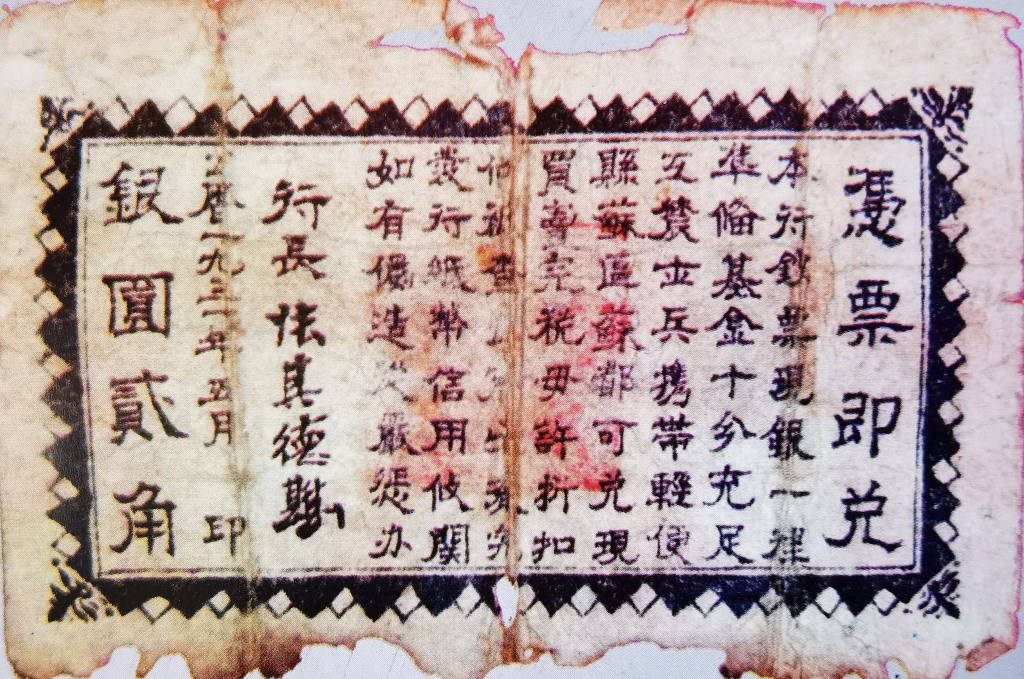 憑票即兑
本行鈔票現銀一樣
準備基金十分充足
工農士兵携帶輕便
縣蘇區蘇都可兑現
買賣完税毋許折扣
查
發行紙幣信用攸関
如有偽造嚴懲办
行長 張其德
公曆一九三一年五月 印
銀圓貳角